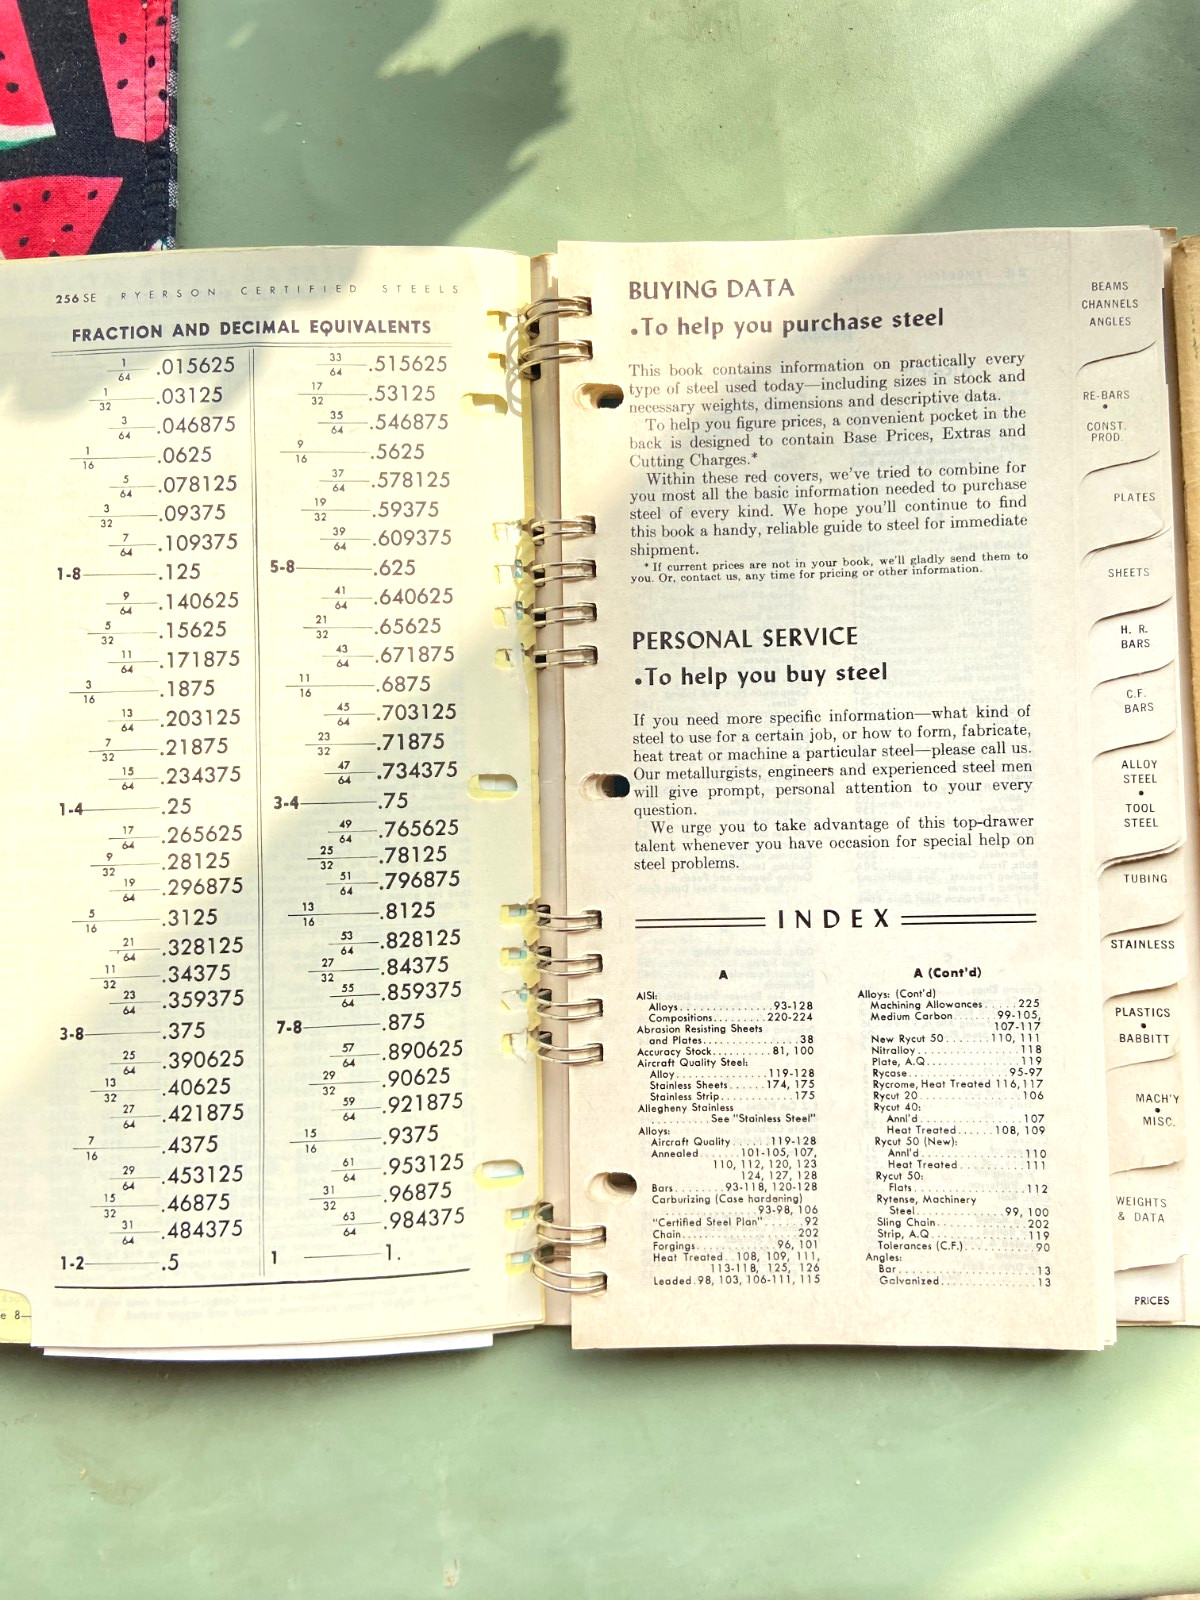 256 SE RYERSON CERTIFIED STEELS
FRACTION AND DECIMAL EQUIVALENTS
1/64 .015625
1/32 .03125
3/64 .046875
1/16 .0625
5/64 .078125
3/32 .09375
7/64 .109375
1-8 .125
9/64 .140625
5/32 .15625
11/64 .171875
3/16 .1875
13/64 .203125
7/32 .21875
15/64 .234375
1-4 .25
17/64 .265625
9/32 .28125
19/64 .296875
5/16 .3125
21/64 .328125
11/32 .34375
23/64 .359375
3-8 .375
25/64 .390625
13/32 .40625
27/64 .421875
7/16 .4375
29/64 .453125
15/32 .46875
31/64 .484375
1-2 .5
33/64 .515625
17/32 .53125
35/64 .546875
9/16 .5625
37/64 .578125
19/32 .59375
39/64 .609375
5-8 .625
41/64 .640625
21/32 .65625
43/64 .671875
11/16 .6875
45/64 .703125
23/32 .71875
47/64 .734375
3-4 .75
49/64 .765625
25/32 .78125
51/64 .796875
13/16 .8125
53/64 .828125
27/32 .84375
55/64 .859375
7-8 .875
57/64 .890625
29/32 .90625
59/64 .921875
15/16 .9375
61/64 .953125
31/32 .96875
63/64 .984375
1 1.
e 8—
BUYING DATA
•To help you purchase steel
This book contains information on practically every
type of steel used today—including sizes in stock and
necessary weights, dimensions and descriptive data.
To help you figure prices, a convenient pocket in the
back is designed to contain Base Prices, Extras and
Cutting Charges.*
Within these red covers, we've tried to combine for
you most all the basic information needed to purchase
steel of every kind. We hope you'll continue to find
this book a handy, reliable guide to steel for immediate
shipment.
* If current prices are not in your book, we'll gladly send them to
you. Or, contact us, any time for pricing or other information.
PERSONAL SERVICE
•To help you buy steel
If you need more specific information—what kind of
steel to use for a certain job, or how to form, fabricate,
heat treat or machine a particular steel—please call us.
Our metallurgists, engineers and experienced steel men
will give prompt, personal attention to your every
question.
We urge you to take advantage of this top-drawer
talent whenever you have occasion for special help on
steel problems.
INDEX
A
AISI:
Alloys. . . . . . . . . . . . 93-128
Compositions. . . . . . . . 220-224
Abrasion Resisting Sheets
and Plates. . . . . . . . . . . 38
Accuracy Stock. . . . . . . 81, 100
Aircraft Quality Steel:
Alloy. . . . . . . . . . . . 119-128
Stainless Sheets. . . . . . 174, 175
Stainless Strip. . . . . . . . . 175
Allegheny Stainless
. . . . . . . . See "Stainless Steel"
Alloys:
Aircraft Quality. . . . . . 119-128
Annealed. . . . . . 101-105, 107,
110, 112, 120, 123
124, 127, 128
Bars. . . . . . . . 93-118, 120-128
Carburizing (Case hardening)
. . . . . . . . . . . . 93-98, 106
"Certified Steel Plan". . . . . . 92
Chain. . . . . . . . . . . . . . 202
Forgings. . . . . . . . . . 96, 101
Heat Treated. . 108, 109, 111,
113-118, 125, 126
Leaded. 98, 103, 106-111, 115
A (Cont'd)
Alloys: (Cont'd)
Machining Allowances. . . . . 225
Medium Carbon. . . . . . 99-105,
107-117
New Rycut 50. . . . . . 110, 111
Nitralloy. . . . . . . . . . . . 118
Plate, A.Q. . . . . . . . . . . 119
Rycase. . . . . . . . . . . . 95-97
Rycrome, Heat Treated 116, 117
Rycut 20. . . . . . . . . . . . 106
Rycut 40:
Annl'd. . . . . . . . . . . . 107
Heat Treated. . . . . . 108, 109
Rycut 50 (New):
Annl'd. . . . . . . . . . . . 110
Heat Treated. . . . . . . . . 111
Rycut 50:
Flats. . . . . . . . . . . . . 112
Rytense, Machinery
Steel. . . . . . . . . . . 99, 100
Sling Chain. . . . . . . . . . 202
Strip, A.Q. . . . . . . . . . . 119
Tolerances (C.F.). . . . . . . . 90
Angles:
Bar. . . . . . . . . . . . . . . 13
Galvanized. . . . . . . . . . . 13
BEAMS
CHANNELS
ANGLES
RE-BARS
•
CONST.
PROD.
PLATES
SHEETS
H. R.
BARS
C.F.
BARS
ALLOY
STEEL
•
TOOL
STEEL
TUBING
STAINLESS
PLASTICS
•
BABBITT
MACH'Y
•
MISC.
WEIGHTS
& DATA
PRICES